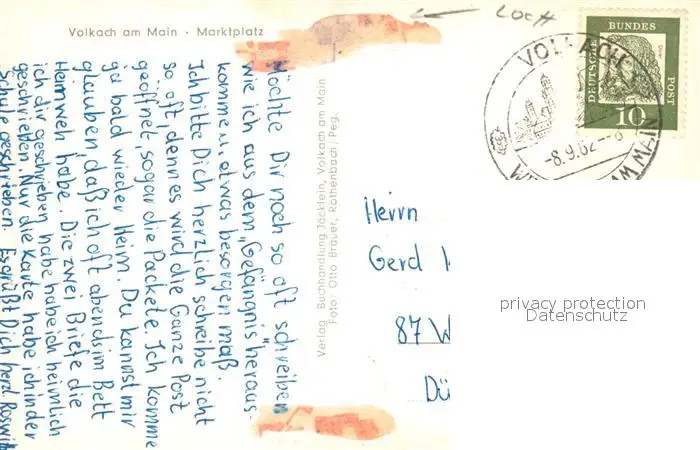 Volkach am Main · Marktplatz
LOCH
Möchte Dir noch so oft schreiben
wie ich aus dem „Gefängnis" heraus-
komme u. etwas besorgen maß.
Ich bitte Dich herzlich schreibe nicht
so oft, denn es wird die Ganze Post
geöffnet, sogar die Packete. Ich komme
ja bald wieder Heim. Du kannst mir
glauben, daß ich oft abends im Bett
Heimweh habe. Die zwei Briefe die
ich dir geschrieben habe habe ich heimlich
geschrieben. Nur die Karte habe ich in der
Schule geschrieben. Es grüßt Dich herzl.
Verlag: Buchhandlung Jäcklein, Volkach am Main
Foto: Otto Bräuer, Rothenbach/Peg.
DEUTSCHE
BUNDES
POST
Dürer
10
VOLKACH
-8.9.62-
Herrn
Gerd
87 W
Dü
privacy protection
Datenschutz